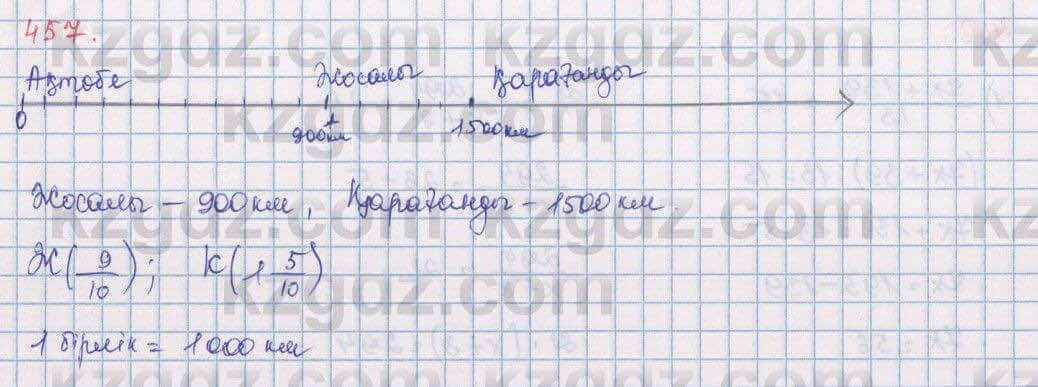 457.
Ақтөбе Жосалы Қарағанды
0 900км 1500км
Жосалы – 900 км, Қарағанды – 1500 км.
Ж(9/10); К(1 5/10)
1 бірлік = 1000 км
kzgdz.com